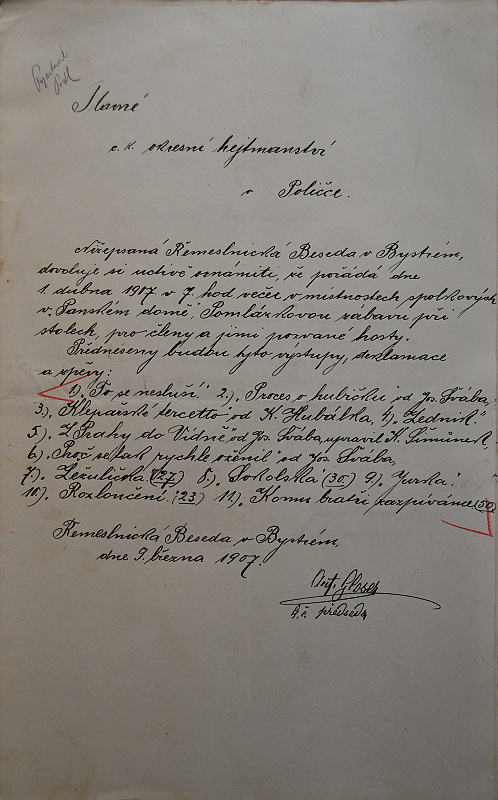 Slavné
c. k. okresní hejtmanství
v Poličce.
Nížepsaná Řemeslnická Beseda v Bystrém,
dovoluje si uctivě oznámiti, že pořádá dne
1. dubna 1907 v 7. hod. večer v místnostech spolkových
v "Panském domě", Pomlázkovou zabavu při
stolech, pro členy a jimi pozvané hosty.
Předneseny budou tyto výstupy, deklamace
a zpěvy:
1) "To se nesluší." 2.) "Proces o hubičku" od Jos. Švába,
3.) "Kleparské tercetto" od K. Hubálka, 4) "Zedník".
5.) "Z Prahy do Vídně" od Jos. Švába, upravil K. Šimůnek,
6.) "Proč se tak rychle oženil" od Jos. Švába,
7.) "Žežulička" (27) 8.) "Sokolská" (30) 9.) "Jurka".
10.) "Rozloučení" (23) 11.) "Komu bratři zazpíváme" (50)
Řemeslnická Beseda v Bystrém,
dne 9. března 1907.
t. č. předseda